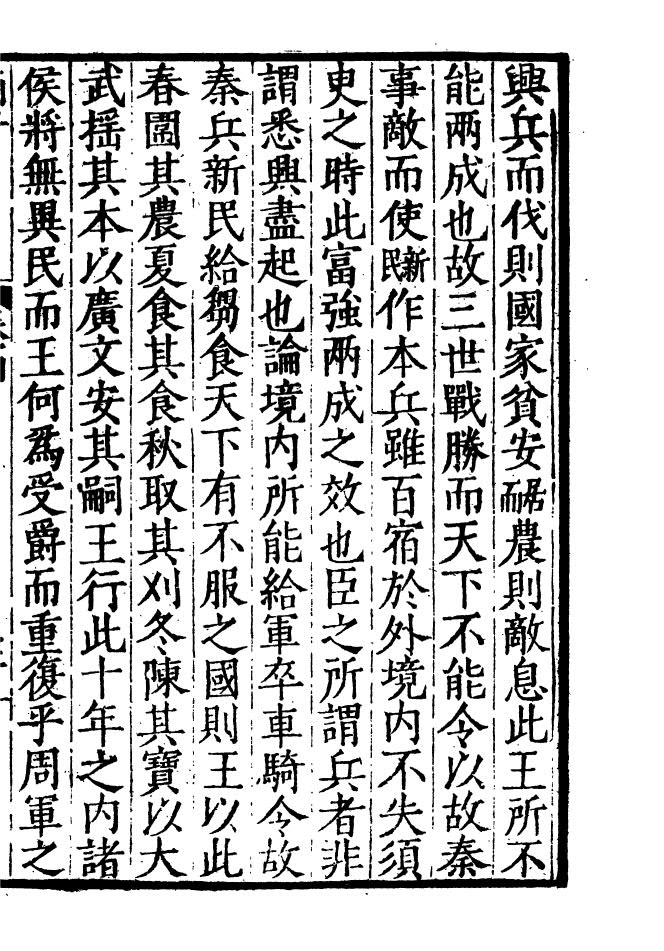 興兵而伐則國家貧安居而農則敵息此王所不
能兩成也故三世戰勝而天下不能令以故秦
事敵而使新民作本兵雖百宿於外境内不失須
臾之時此富強兩成之效也臣之所謂兵者非
謂悉興盡起也論境内所能給軍卒車騎令故
秦兵新民給芻食天下有不服之國則王以此
春圍其農夏食其食秋取其刈冬陳其寶以大
武揺其本以廣文安其嗣王行此十年之内諸
侯將無異民而王何為受爵而重復乎周軍之